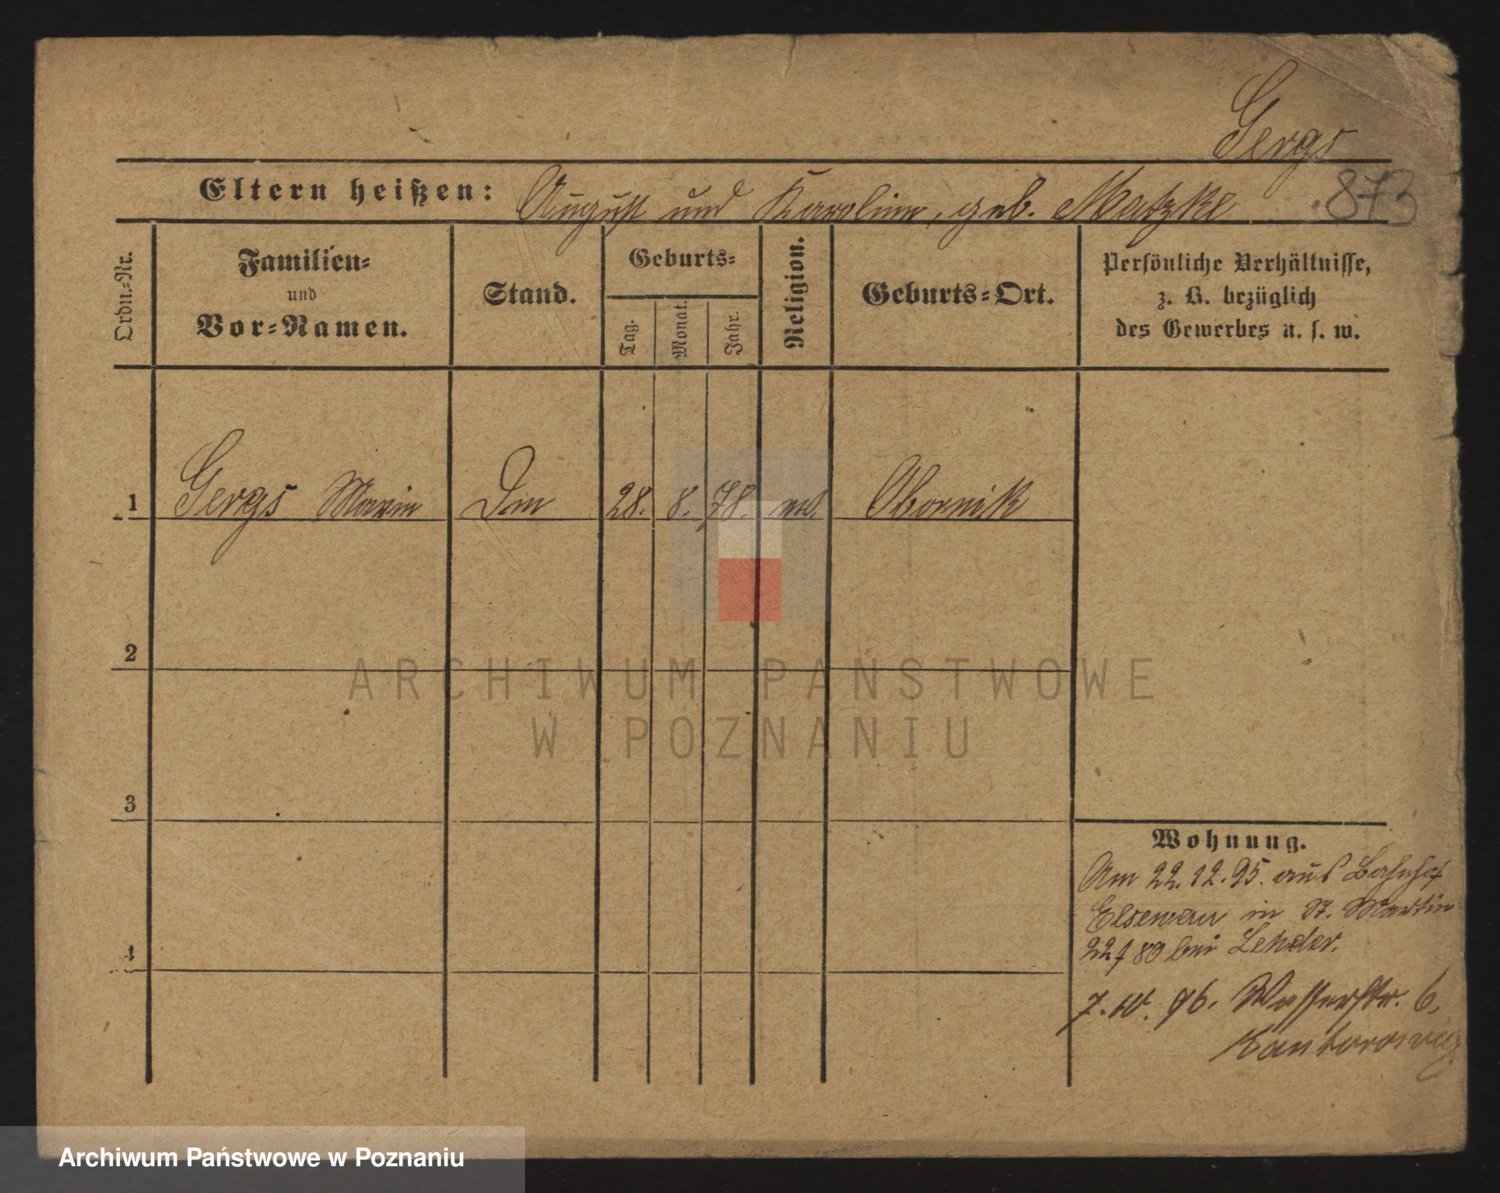 Gergs
873
Eltern heißen: August und Karoline, geb. Matzke
Ordn.-Nr.
Familien-
und
Vor-Namen.
Stand.
Geburts-
Tag.
Monat.
Jahr.
Religion.
Geburts-Ort.
Persönliche Verhältnisse,
z. B. bezüglich
des Gewerbes u. s. w.
1 Gergs Marie 28. 8. 78. Obornik
2
3
4
ARCHIWUM PAŃSTWOWE
W POZNANIU
Wohnung.
Am 22.12.95. aus Bahnhof
in St. Martin
bei Lehder.
7. 10. 96. Wasserstr. 6.
Kantorowicz
Archiwum Państwowe w Poznaniu